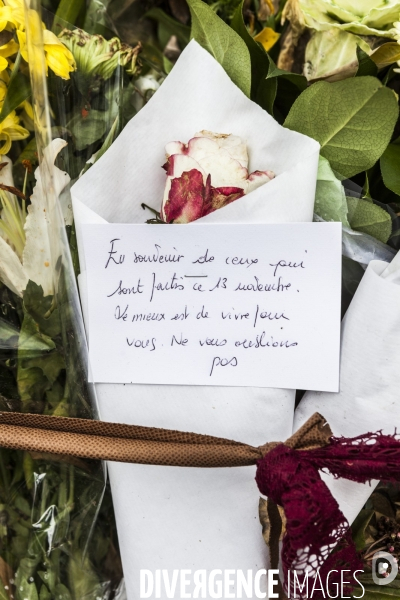 En souvenir de ceux qui
sont partis ce 13 novembre.
Le mieux est de vivre pour
vous. Ne vous oublions
pas
DIVERGENCE IMAGES